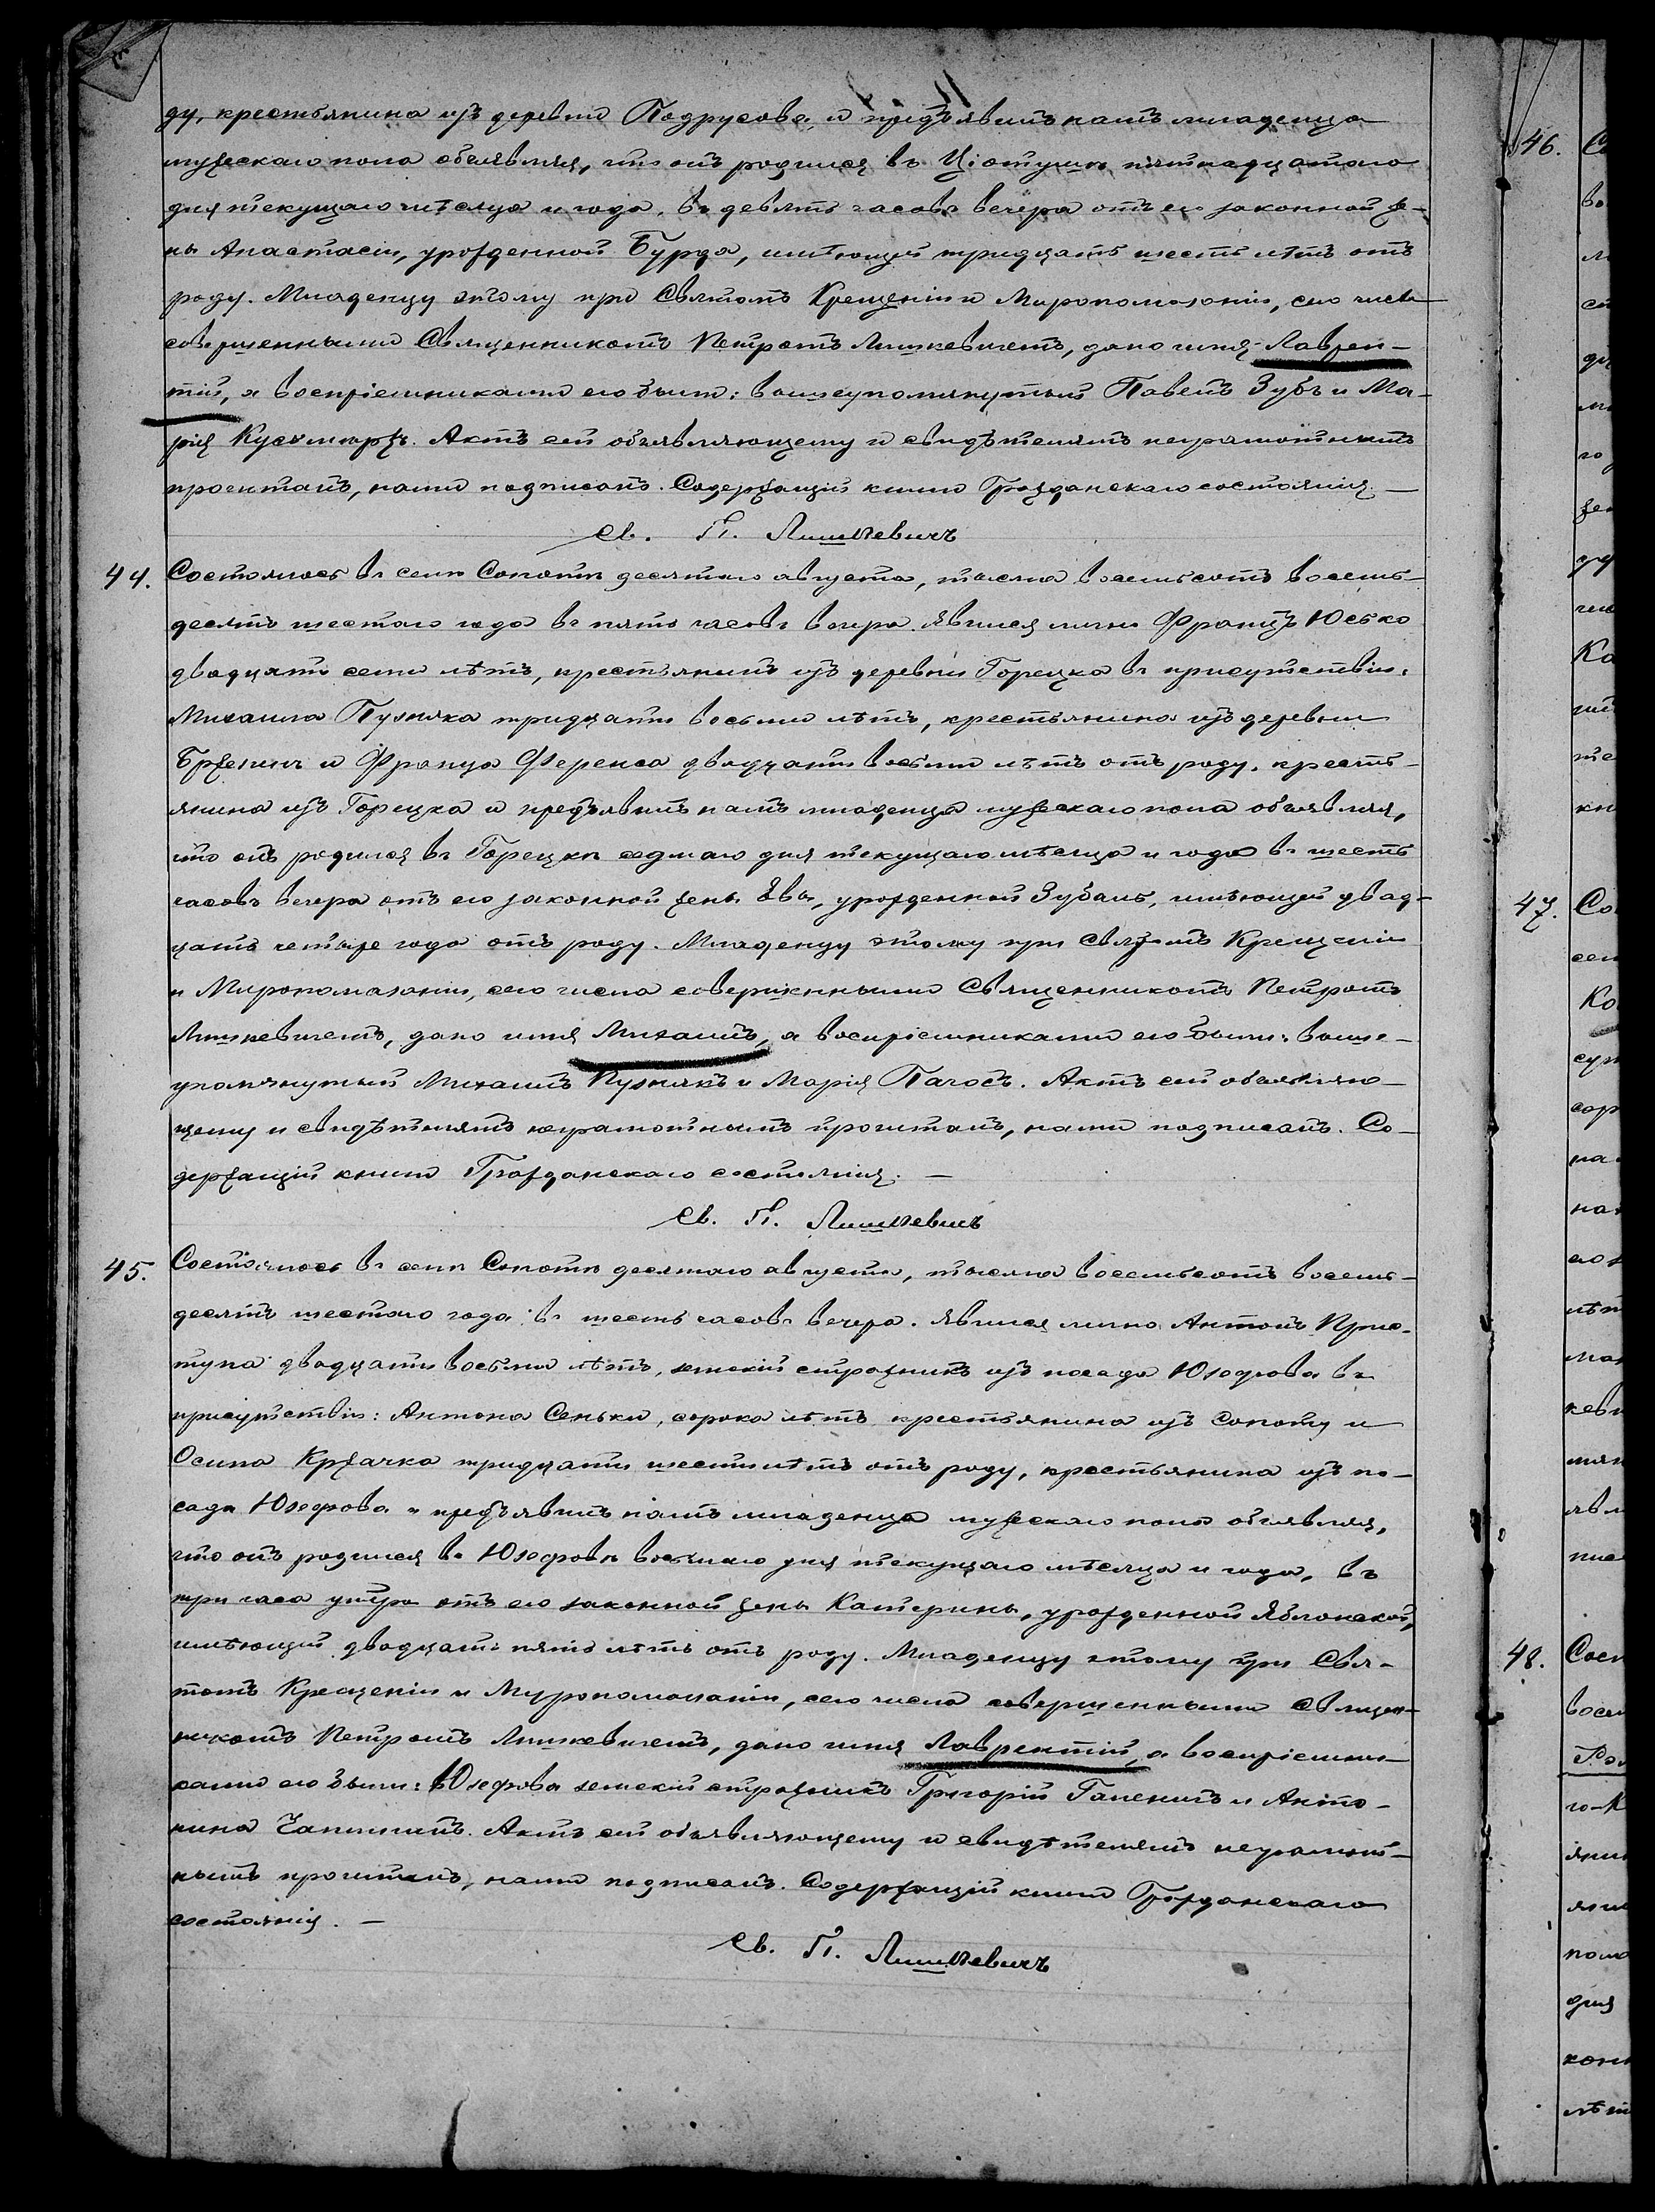 ду, крестьянина изъ деревни Подрусова, и предъявилъ намъ младенца
мужескаго пола объявляя, что онъ родился въ Ціотушѣ пятнадцатаго
дня текущаго мѣсяца и года, въ девять часовъ вечера отъ его законной же-
ны Анастасіи, урожденной Бурда, имѣющей тридцать шесть лѣтъ отъ
роду. Младенцу этому при Святомъ Крещеніи и Миропомазаніи, сего числа
совершенными Священникомъ Петромъ Лишкевичемъ, дано имя Лаврен-
тій, а воспріемниками его были: вышеупомянутый Павелъ Зубъ и Ма-
рія. Актъ сей объявляющему и свидѣтелямъ неграмотнымъ
прочитанъ, нами подписанъ. Содержащій книги Гражданскаго состоянія. —
Св. П. Лишкевичъ
44. Состоялось въ селѣ Сопотѣ десятаго августа, тысяча восемьсотъ восемь-
десятъ шестого года въ пять часовъ вечера. Явился лично Францъ Юсько
двадцати семи лѣтъ, крестьянинъ изъ деревни Горецка въ присутствіи:
Михаила Пузняка тридцати восьми лѣтъ, крестьянина изъ деревни
Бржезинъ и Франца Ференса двадцати восьми лѣтъ отъ роду, кресть-
янина изъ Горецка и предъявилъ намъ младенца мужескаго пола объявляя,
что онъ родился въ Горецкѣ седмаго дня текущаго мѣсяца и года въ шесть
часовъ вечера отъ его законной жены Евы, урожденной Зубаль, имѣющей двад-
цать четыре года отъ роду. Младенцу этому при Святомъ Крещеніи
и Миропомазаніи, сего числа совершенными Священникомъ Петромъ
Лишкевичемъ, дано имя Михаилъ, а воспріемниками его были: выше-
упомянутый Михаилъ Пузнякъ и Марія Пагосъ. Актъ сей объявляю-
щему и свидѣтелямъ неграмотнымъ прочитанъ, нами подписанъ. Со-
держащій книги Гражданскаго состоянія. —
Св. П. Лишкевичъ
45. Состоялось въ селѣ Сопотѣ десятаго августа, тысяча восемьсотъ восемь-
десятъ шестого года въ шесть часовъ вечера. Явился лично Антонъ Прис-
тупа двадцати восьми лѣтъ, земскій стражникъ изъ посада Юзефова въ
присутствіи: Антона Сеньки, сорока лѣтъ крестьянина изъ Сопоту и
Осипа Кржачка тридцати шести лѣтъ отъ роду, крестьянина изъ по-
сада Юзефова и предъявилъ намъ младенца мужескаго пола объявляя,
что онъ родился въ Юзефовѣ восьмаго дня текущаго мѣсяца и года, въ
три часа утра отъ его законной жены Катерины, урожденной Яблонской,
имѣющей двадцать пять лѣтъ отъ роду. Младенцу этому при Свя-
томъ Крещеніи и Муропомазаніи, сего числа совершенными Священ-
никомъ Петромъ Лишкевичемъ, дано имя Лаврентій, а воспріемни-
ками его были: Юзефова земскій стражникъ Григорій Галенинъ и Анто-
нина. Актъ сей объявляющему и свидѣтелямъ неграмот-
нымъ прочитанъ, нами подписанъ. Содержащій книги Гражданскаго
состоянія. —
Св. П. Лишкевичъ
46.
47.
48.